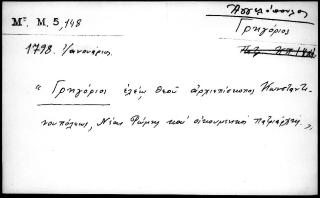 Ἀγγελόπουλος
Μ. Μ. 5, 148
Γρηγόριος
1798. Ἰανουάριος.
" Γρηγόριος ἐλέῳ θεοῦ ἀρχιεπίσκοπος Κωνσταντι-
νουπόλεως, Νέας Ῥώμης καὶ οἰκουμενικὸς πατριάρχης ",